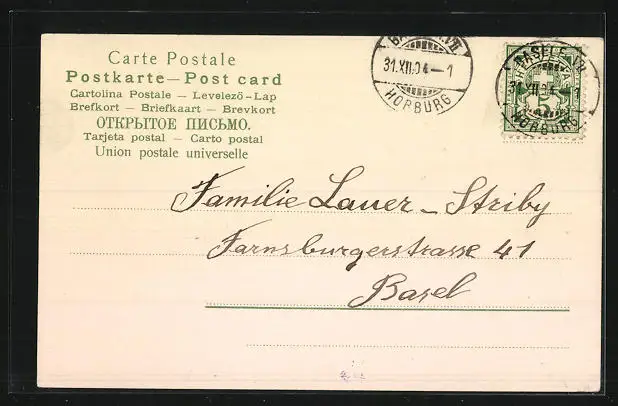 Carte Postale
Postkarte — Post card
Cartolina Postale — Levelező-Lap
Brefkort — Briefkaart — Brevkort
ОТКРЫТОЕ ПИСЬМО.
Tarjeta postal — Carto postal
Union postale universelle
31.XII.04—1
HORBURG
BASEL 5.VII
31.XII.04—1
HORBURG
5
Familie Lauer-Striby
Farnsburgerstrasse 41
Basel